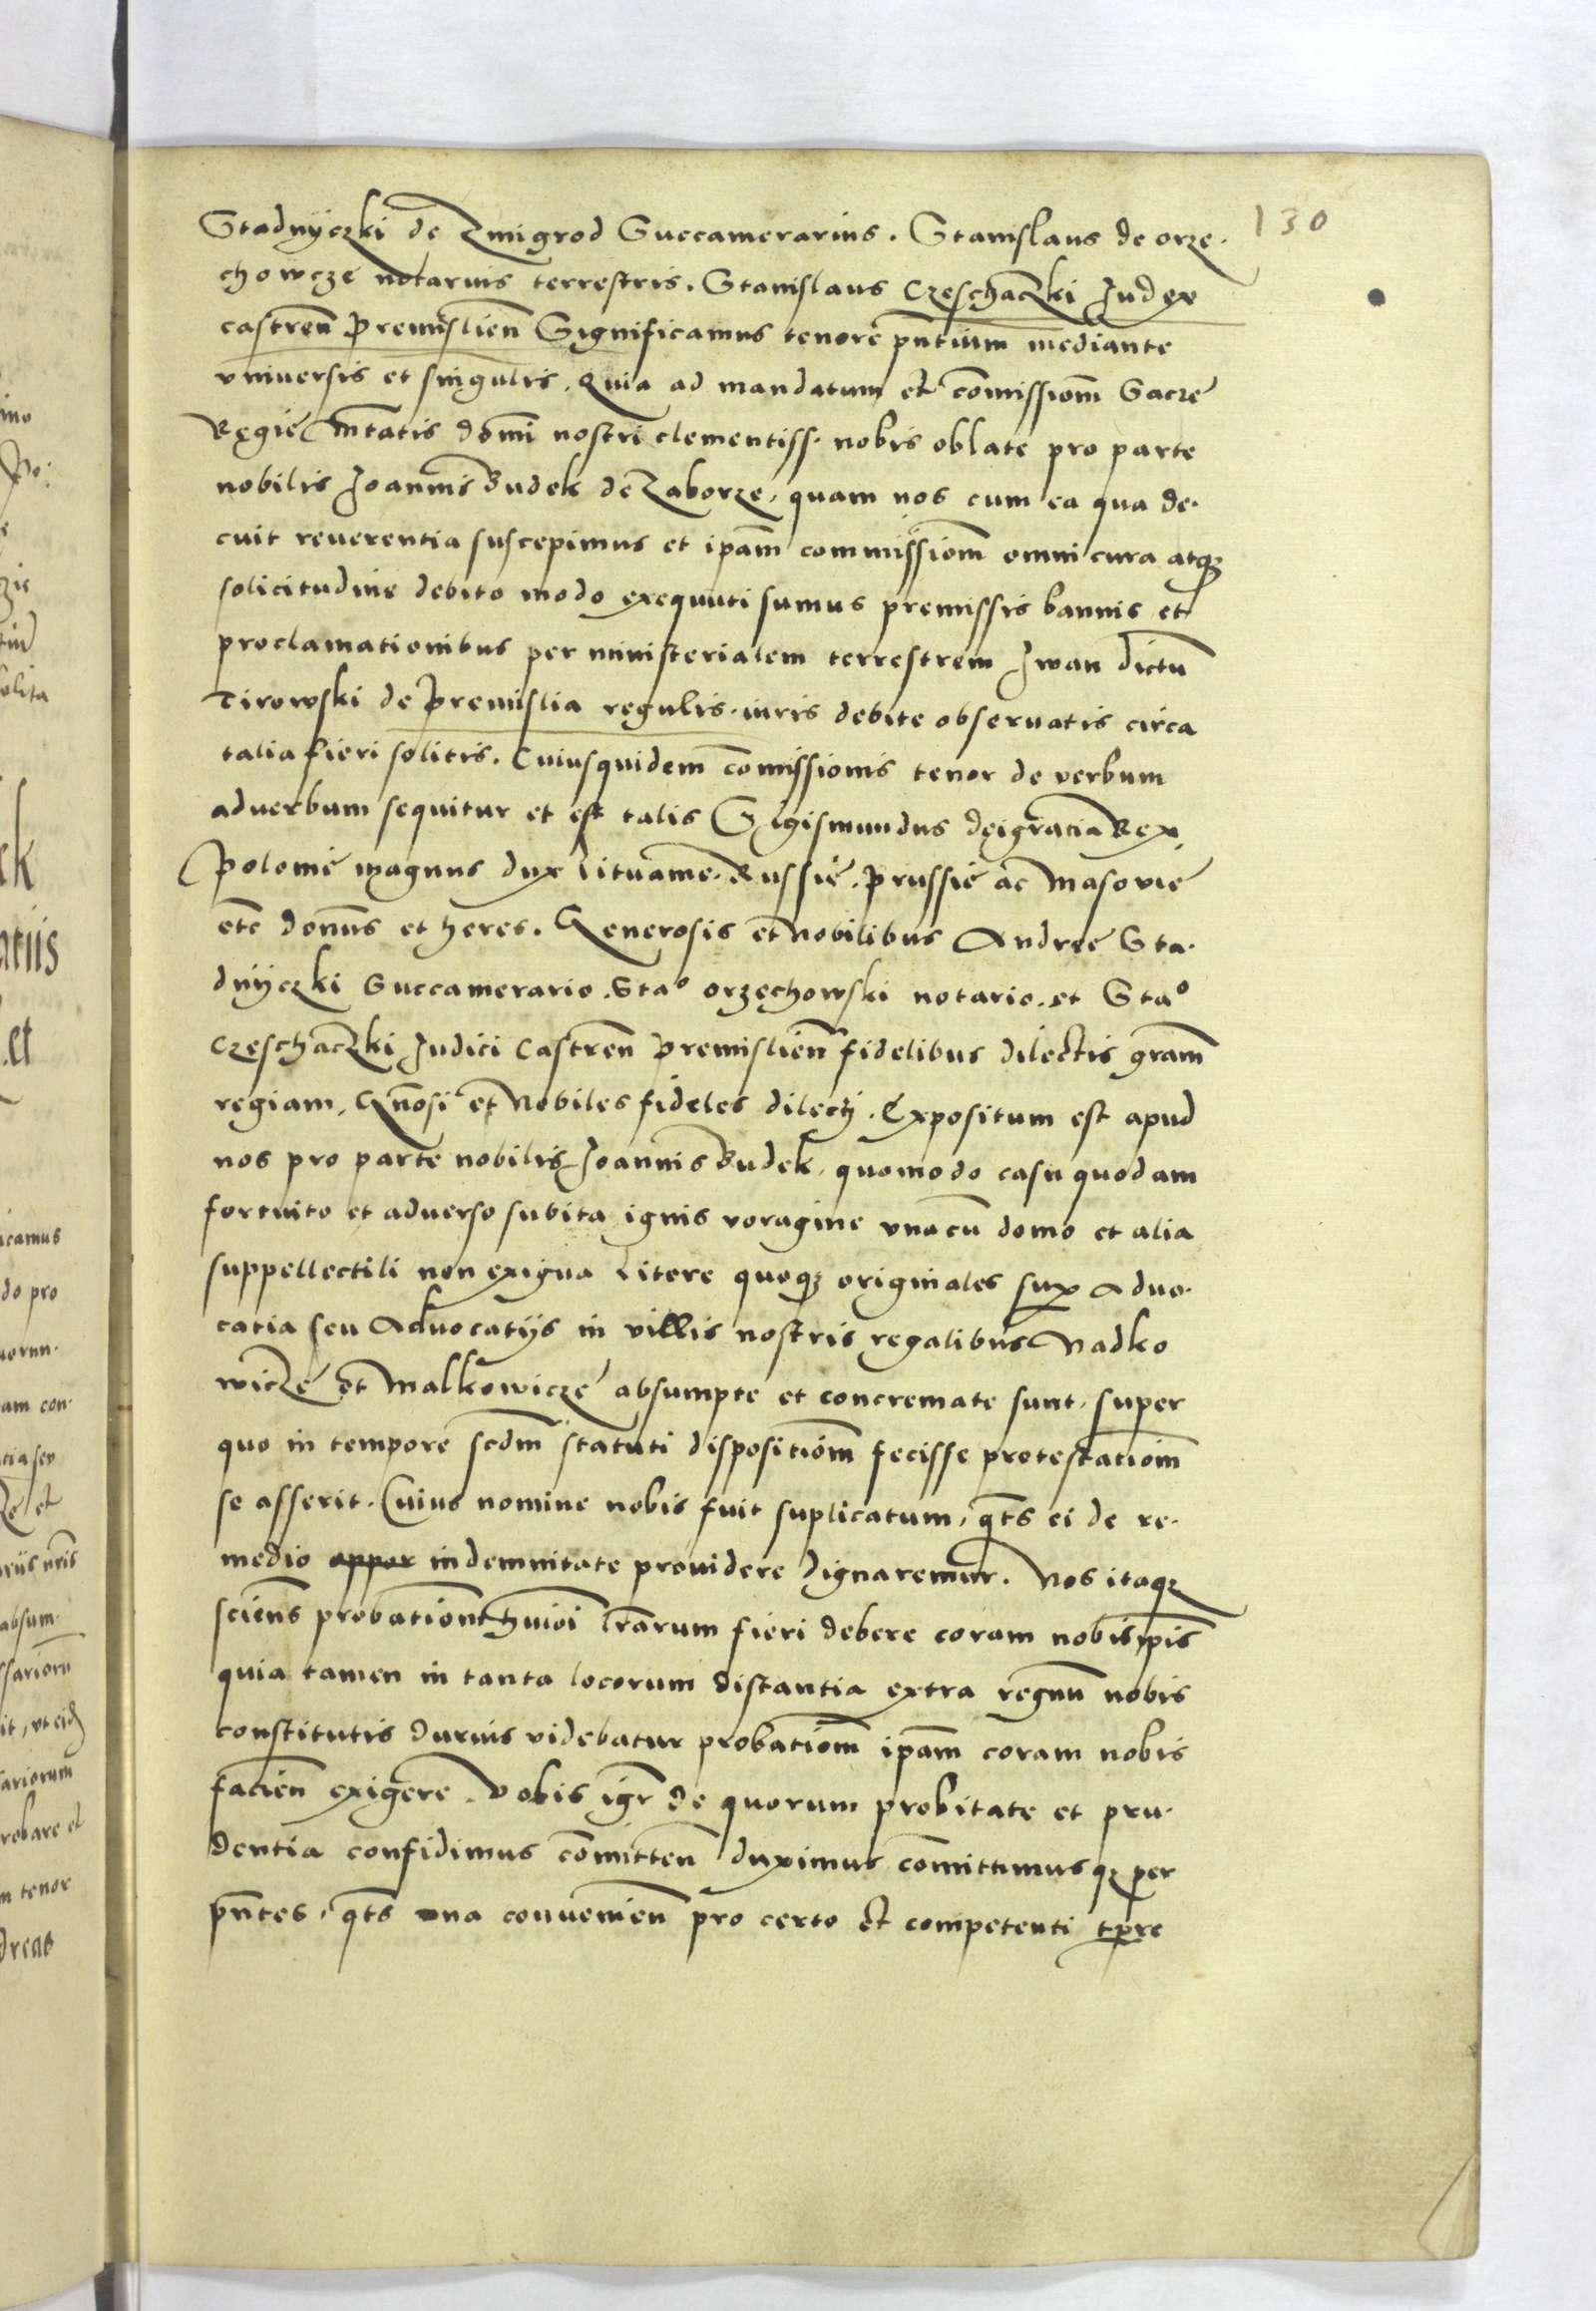 130
Stadnÿczki de Zmigrod Succamerarius. Stanislaus de orze-
chowcze notarius terrestris. Stanislaus Czeschaczki Judex
castren̄ Premislien̄ Significamus tenore pn̄tium mediante
vniuersis et singulis. Quia ad mandatum et com̄issiom̄ Sacre
Regie Mtatis dom̄i nostri clementiss. nobis oblate pro parte
nobilis Joannis Budek de Zaborze, quam nos cum ea qua de-
cuit reuerentia suscepimus et ipam̄ commissiom̄ omni cura atqʒ
solicitudine debito modo exequuti sumus premissis bannis et
proclamationibus per ministerialem terrestrem Jwan dictū
Tirowski de Premislia regulis iuris debite obseruatis circa
talia fieri solitis. Cuiusquidem com̄issionis tenor de verbum
aduerbum sequitur et est talis Sigismundus deigratia Rex
Polonie magnus dux Lituanie Russie. Prussie ac Masovie
etc̄ don̄us et heres. Generosis et Nobilibus Andree Sta-
dnÿczki Succamerario. Stao orzechowski notario. et Stao
Czeschaczki Judici Castren̄ Premislien̄ fidelibus dilectis gram̄
regiam, Gn̄osi et Nobiles fideles dilecti. Expositum est apud
nos pro parte nobilis Joannis Budek, quomodo casu quodam
fortuito et aduerso subita ignis voragine vnacū domo et alia
suppellectili non exigua Litere quoqʒ originales sup Aduo-
catia seu Aduocatijs in villis nostris regalibus Nadko
wicze et Malkowicze absumpte et concremate sunt, super
quo in tempore scdm̄ statuti dispositiom̄ fecisse protestatiom̄
se asserit. Cuius nomine nobis fuit suplicatum, qts̄ ei de re-
medio appor indemnitate prouidere dignaremur. Nos itaqʒ
sciens probatiom̄ huioi lr̄arum fieri debere coram nobis ipis
quia tamen in tanta locorum distantia extra regnū nobis
constitutis durius videbatur probatiom̄ ipam̄ coram nobis
facien̄ exigere. Vobis igr̄ de quorum probitate et pru-
dentia confidimus com̄itten̄ duximus com̄ittimusqʒ per
pn̄tes, qts̄ vna conuenien̄ pro certo et competenti tpre